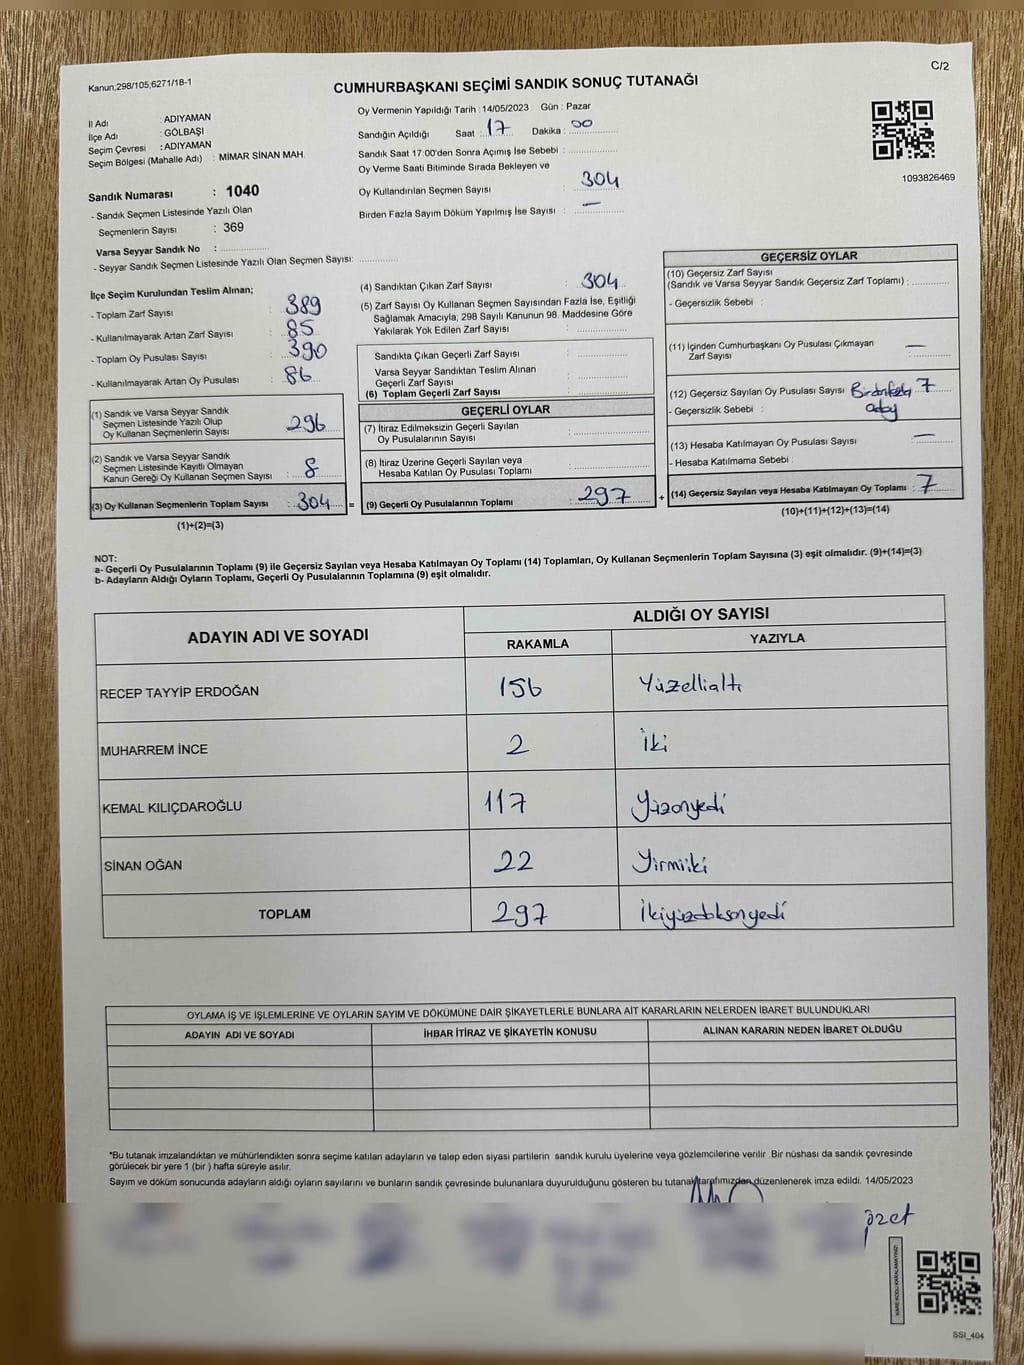 Kanun;298/105;6271/18-1
C/2
CUMHURBAŞKANI SEÇİMİ SANDIK SONUÇ TUTANAĞI
İl Adı : ADIYAMAN
İlçe Adı : GÖLBAŞI
Seçim Çevresi : ADIYAMAN
Seçim Bölgesi (Mahalle Adı) : MİMAR SİNAN MAH.
Sandık Numarası : 1040
- Sandık Seçmen Listesinde Yazılı Olan
Seçmenlerin Sayısı : 369
Varsa Seyyar Sandık No :
- Seyyar Sandık Seçmen Listesinde Yazılı Olan Seçmen Sayısı:
Oy Vermenin Yapıldığı Tarih : 14/05/2023 Gün : Pazar
Sandığın Açıldığı Saat : 17 Dakika : 00
Sandık Saat 17:00'den Sonra Açımış İse Sebebi :
Oy Verme Saati Bitiminde Sırada Bekleyen ve
Oy Kullandırılan Seçmen Sayısı : 304
Birden Fazla Sayım Döküm Yapılmış İse Sayısı : —
1093826469
İlçe Seçim Kurulundan Teslim Alınan;
- Toplam Zarf Sayısı : 389
- Kullanılmayarak Artan Zarf Sayısı : 85
- Toplam Oy Pusulası Sayısı : 390
- Kullanılmayarak Artan Oy Pusulası : 86
(1) Sandık ve Varsa Seyyar Sandık
Seçmen Listesinde Yazılı Olup
Oy Kullanan Seçmenlerin Sayısı : 296
(2) Sandık ve Varsa Seyyar Sandık
Seçmen Listesinde Kayıtlı Olmayan
Kanun Gereği Oy Kullanan Seçmen Sayısı : 8
(3) Oy Kullanan Seçmenlerin Toplam Sayısı : 304 =
(1)+(2)=(3)
(4) Sandıktan Çıkan Zarf Sayısı : 304
(5) Zarf Sayısı Oy Kullanan Seçmen Sayısından Fazla İse, Eşitliği
Sağlamak Amacıyla; 298 Sayılı Kanunun 98. Maddesine Göre
Yakılarak Yok Edilen Zarf Sayısı :
Sandıkta Çıkan Geçerli Zarf Sayısı :
Varsa Seyyar Sandıktan Teslim Alınan
Geçerli Zarf Sayısı :
(6) Toplam Geçerli Zarf Sayısı :
GEÇERLİ OYLAR
(7) İtiraz Edilmeksizin Geçerli Sayılan
Oy Pusulalarının Sayısı :
(8) İtiraz Üzerine Geçerli Sayılan veya
Hesaba Katılan Oy Pusulası Toplamı :
(9) Geçerli Oy Pusulalarının Toplamı : 297 +
GEÇERSİZ OYLAR
(10) Geçersiz Zarf Sayısı
(Sandık ve Varsa Seyyar Sandık Geçersiz Zarf Toplamı) :
- Geçersizlik Sebebi :
(11) İçinden Cumhurbaşkanı Oy Pusulası Çıkmayan
Zarf Sayısı : —
(12) Geçersiz Sayılan Oy Pusulası Sayısı : 7
- Geçersizlik Sebebi : Birden fazla
aday
(13) Hesaba Katılmayan Oy Pusulası Sayısı : —
- Hesaba Katılmama Sebebi :
(14) Geçersiz Sayılan veya Hesaba Katılmayan Oy Toplamı : 7
(10)+(11)+(12)+(13)=(14)
NOT:
a- Geçerli Oy Pusulalarının Toplamı (9) ile Geçersiz Sayılan veya Hesaba Katılmayan Oy Toplamı (14) Toplamları, Oy Kullanan Seçmenlerin Toplam Sayısına (3) eşit olmalıdır. (9)+(14)=(3)
b- Adayların Aldığı Oyların Toplamı, Geçerli Oy Pusulalarının Toplamına (9) eşit olmalıdır.
ADAYIN ADI VE SOYADI
ALDIĞI OY SAYISI
RAKAMLA YAZIYLA
RECEP TAYYİP ERDOĞAN 156 Yüzellialtı
MUHARREM İNCE 2 İki
KEMAL KILIÇDAROĞLU 117 Yüzonyedi
SİNAN OĞAN 22 Yirmiiki
TOPLAM 297 İkiyüzdoksonyedi
OYLAMA İŞ VE İŞLEMLERİNE VE OYLARIN SAYIM VE DÖKÜMÜNE DAİR ŞİKAYETLERLE BUNLARA AİT KARARLARIN NELERDEN İBARET BULUNDUKLARI
ADAYIN ADI VE SOYADI İHBAR İTİRAZ VE ŞİKAYETİN KONUSU ALINAN KARARIN NEDEN İBARET OLDUĞU
*Bu tutanak imzalandıktan ve mühürlendikten sonra seçime katılan adayların ve talep eden siyasi partilerin sandık kurulu üyelerine veya gözlemcilerine verilir .Bir nüshası da sandık çevresinde
görülecek bir yere 1 (bir ) hafta süreyle asılır.
Sayım ve döküm sonucunda adayların aldığı oyların sayılarını ve bunların sandık çevresinde bulunanlara duyurulduğunu gösteren bu tutanak tarafımızdan düzenlenerek imza edildi. 14/05/2023
özet
KARE KODU KARALAMAYINIZ!
SSI_404